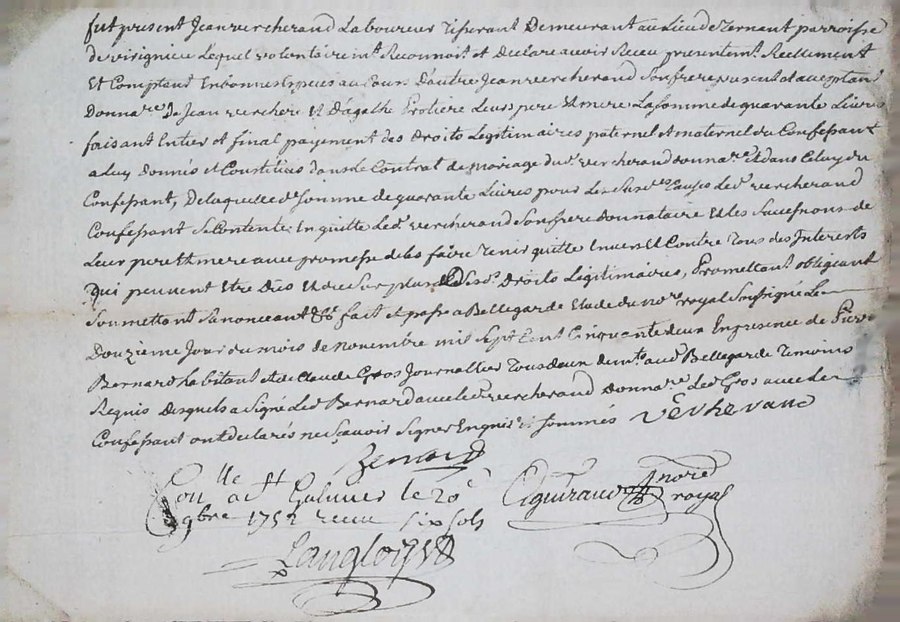 fut present Jean vercherand Laboureur tisserant Demeurant au Lieu de ternant parroisse
de virignieu Lequel volontairemt. Reconnoit et Declare avoir Receu presentemt. Reellement
Et Comptant En bonnes Especes au Cours D'autre Jean vercherand Son frere present et acceptant
Donnare. De Jean verchere Et D'agathe Leurs pere Et mere La somme de quarante Livres
faisant Entier et final payement des Droits Legitimaires paternel et maternel du Confessant
a Luy Donnés et Constitués dans Le Contrat de mariage du d. vercherand donnare. Et dans Celuy du
Confessant, De laquelle de. somme de quarante Livres pour Les Causes Led. vercherand
Confessant Se Contente, En quitte Led. vercherand Son frere Donnataire Et les Successions de
Leur pere Et mere avec promesse de les faire tenir quitte Envers Et Contre tous des Interests
qui peuvent Etre Dûs Et de Surplus desd. Droits Legitimaires, Promettant obligeant
Soumettant Renonceant &c. fait et passé a Bellegarde Etude du nore. royal Soussigné Le
Douzieme Jour du mois de novembre mil Sept Cent Cinquante deux En presence de
Bernard habitant et de Claude Gros Journallier tous deux demts. aud. Bellegarde temoins
Requis Desquels a Signé Led. Bernard avec Led. vercherand Donnare. Led. Gros avec Le
Confessant ont declarés ne Scavoir Signer Enquis et Sommés Vercherand
Bernard
Con.lle a St Galmier le 20e
9bre 1752 receu six sols
nore royal
Langlois